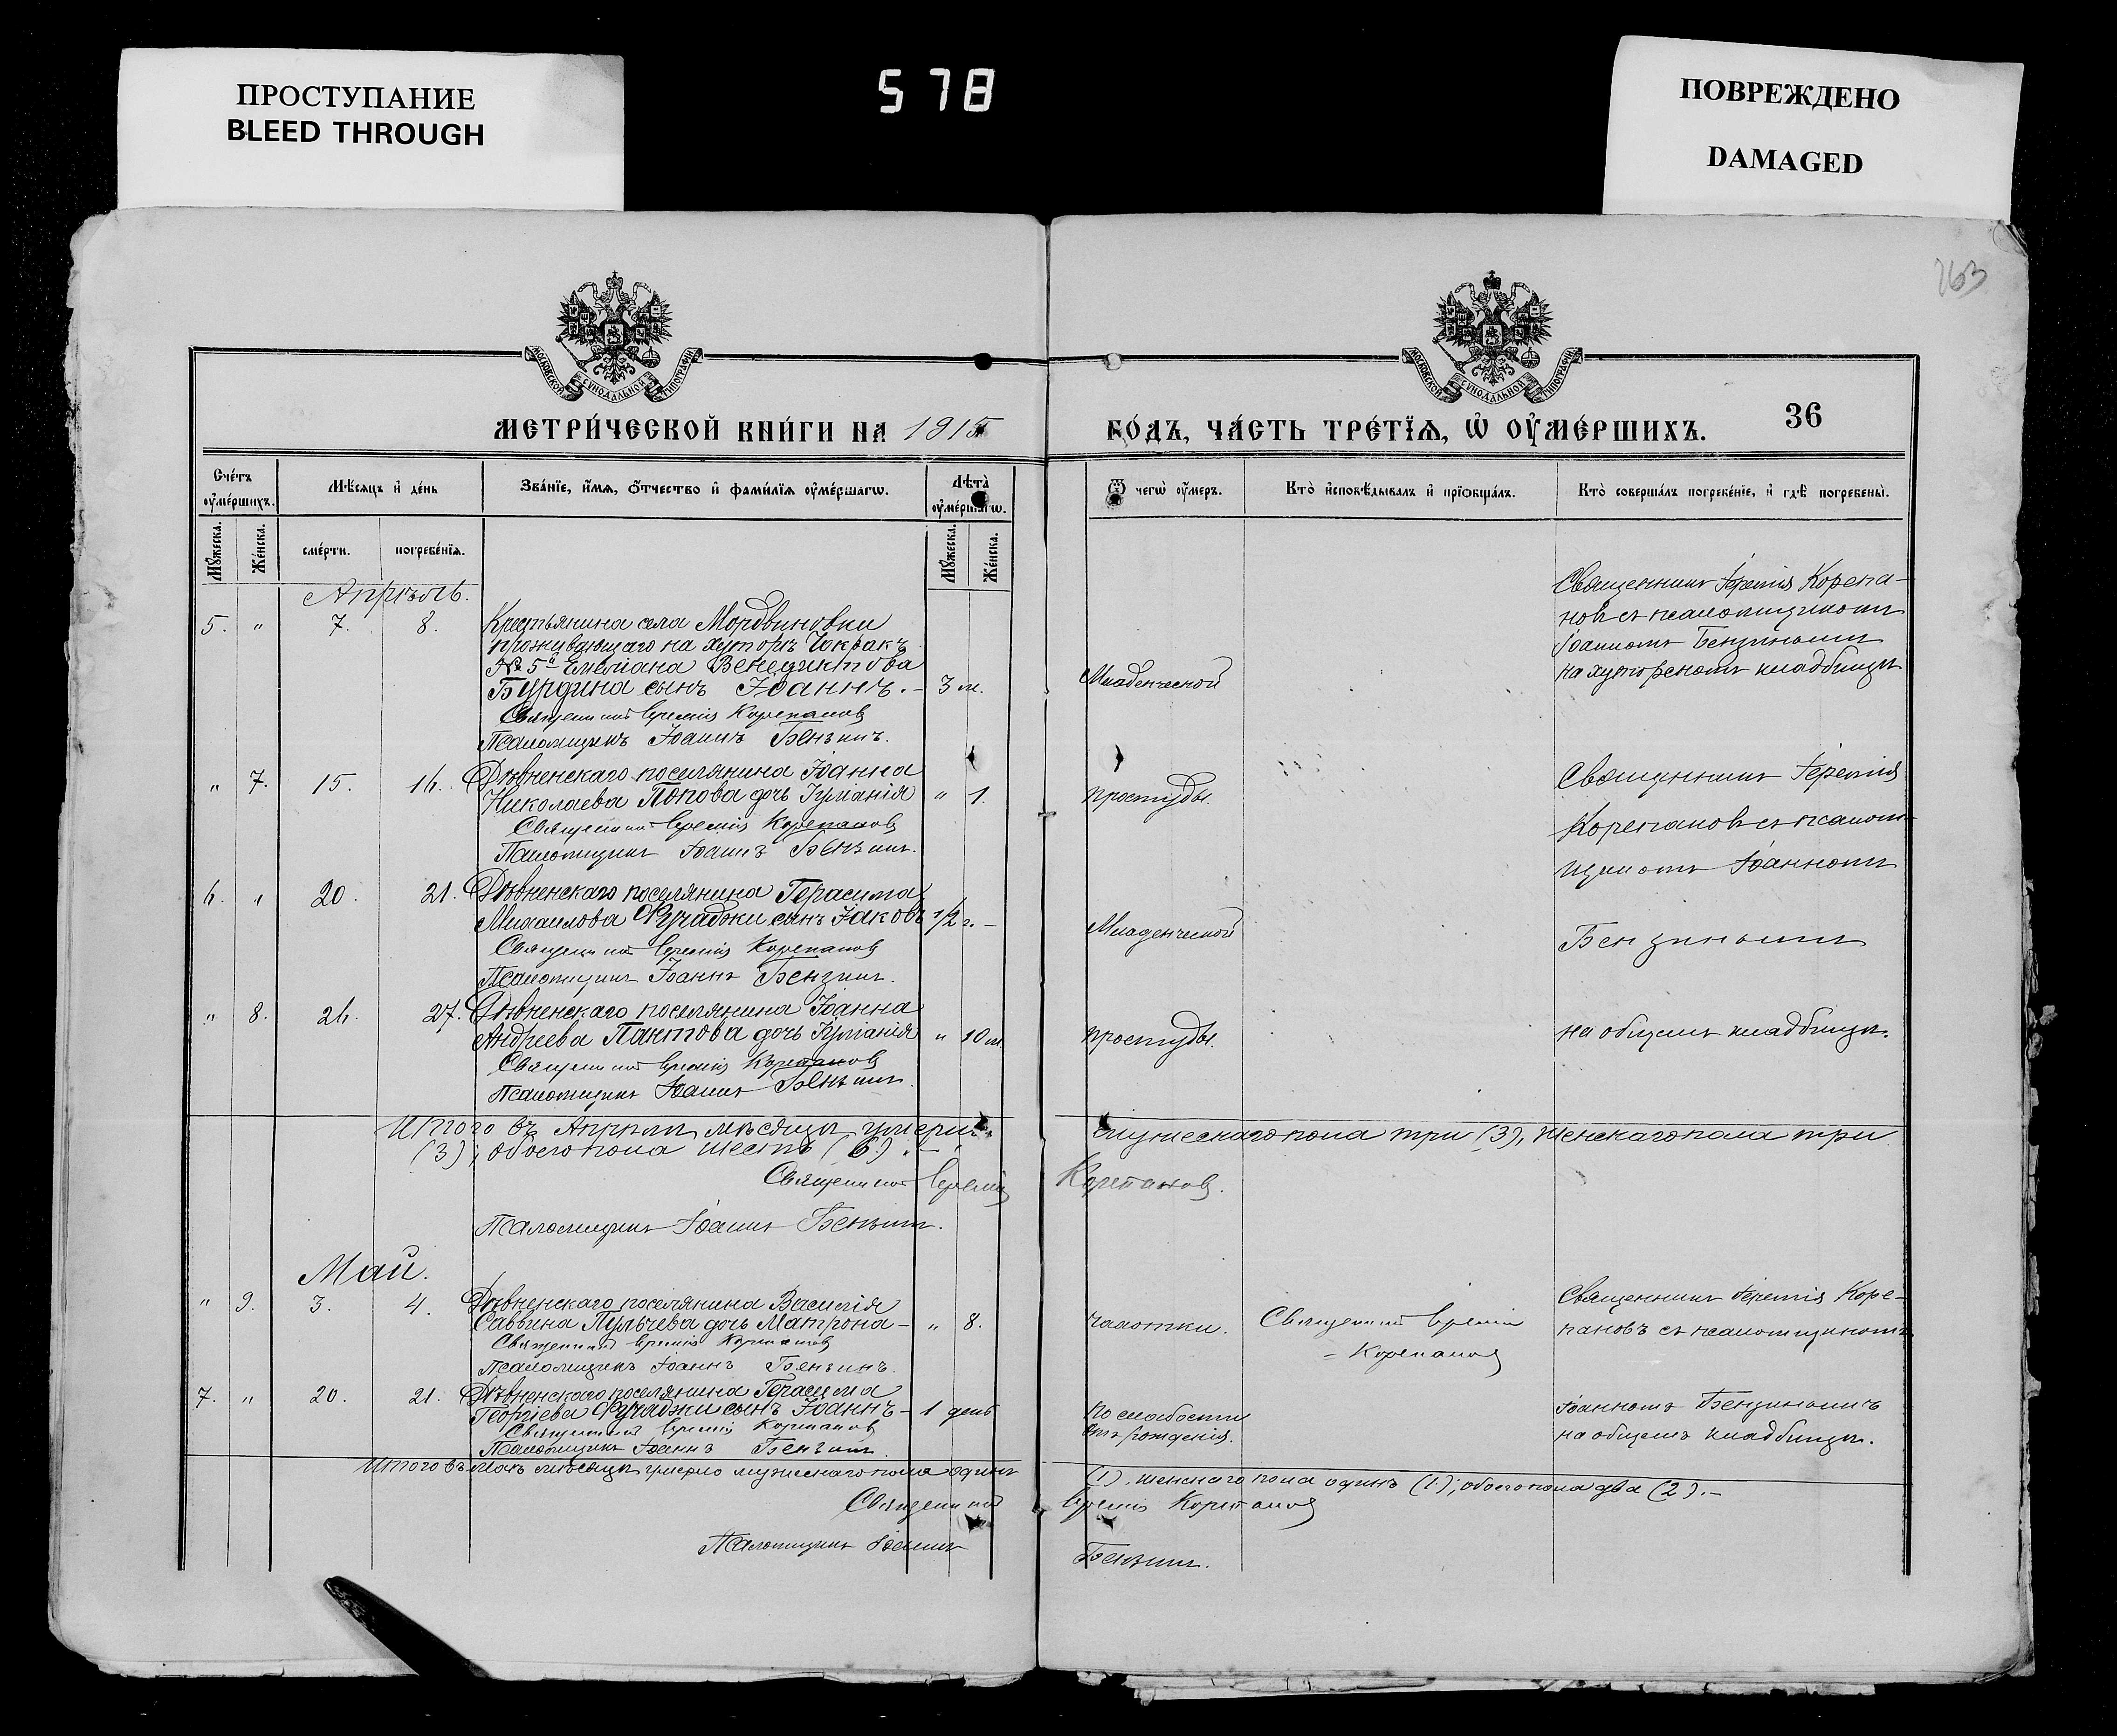 ПРОСТУПАНИЕ
BLEED THROUGH
578
ПОВРЕЖДЕНО
DAMAGED
163
МОСКОВСКОЙ СѴНОДАЛЬНОЙ ТИПОГРАФІИ
МОСКОВСКОЙ СѴНОДАЛЬНОЙ ТИПОГРАФІИ
МЕТРИ́ЧЕСКОЙ КНИ́ГИ НА 1915
ГО́ДЪ, ЧА́СТЬ ТРЕ́ТЇѦ, Ѡ҆ ОУ҆МЕ́РШИХЪ.
36
Сче́тъ оу҆ме́ршихъ.
Мѣ́сяцъ и҆ де́нь
Зва́нїе, и҆́мѧ, ѻ҆́тчество и҆ фами́лїѧ оу҆ме́ршагѡ.
Лѣ́та оу҆ме́ршагѡ.
Ѿ чегѡ̀ оу҆́меръ.
Кто̀ и҆сповѣ́дывалъ и҆ прїѻбща́лъ.
Кто̀ соверша́лъ погребе́нїе, и҆ гдѣ̀ погребены̀.
Мꙋ́жеска.
Же́нска.
сме́рти.
погребе́нїѧ.
Мꙋ́жеска.
Же́нска.
Апрѣль.
5. " 7. 8. Крестьянина села Мордвиновки
проживающаго на хуторѣ Чокракъ
№ 5й Емелиана Венедиктова
Бурдина сынъ Іоаннъ. - 3 м.
Священникъ Іеремія Корепановъ
Псаломщикъ Іоаннъ Бензинъ.
Младенческой
Священникъ Іеремія Корепа-
новъ съ псаломщикомъ
Іоанномъ Бензинымъ
на хуторскомъ кладбищѣ
" 7. 15. 16. Дѣвненскаго поселянина Іоанна
Николаева Попова дочь Іуліанія " 1.
Священникъ Іеремія Корепановъ
Псаломщикъ Іоаннъ Бензинъ.
простуды.
Священникъ Іеремія
Корепановъ съ псалом-
щикомъ Іоанномъ
6. " 20. 21. Дѣвненскаго поселянина Герасима
Михаилова Фучаджи сынъ Іаковъ 1/2 г. -
Священникъ Іеремія Корепановъ
Псаломщикъ Іоаннъ Бензинъ.
Младенческой
Бензинымъ
" 8. 26. 27. Дѣвненскаго поселянина Іоанна
Андреева Пактова дочь Іуліанія " 10 м.
Священникъ Іеремія Корепановъ
Псаломщикъ Іоаннъ Бензинъ.
простуды.
на общемъ кладбищѣ.
Итого въ Апрѣлѣ мѣсяцѣ умерли мужескаго пола три (3), женскаго пола три
(3); обоего пола шесть (6). -
Священникъ Іеремія Корепановъ.
Псаломщикъ Іоаннъ Бензинъ.
Май.
" 9. 3. 4. Дѣвненскаго поселянина Василія
Саввина Пульчева дочь Матрона - " 8.
Священникъ Іеремія Корепановъ
Псаломщикъ Іоаннъ Бензинъ.
чахотки.
Священникъ Іеремія
Корепановъ
Священникъ Іеремія Коре-
пановъ съ псаломщикомъ
7. " 20. 21. Дѣвненскаго поселянина Герасима
Георгіева Фучаджи сынъ Іоаннъ - 1 день
Священникъ Іеремія Корепановъ
Псаломщикъ Іоаннъ Бензинъ.
по слабости
отъ рожденія.
Іоанномъ Бензинымъ
на общемъ кладбищѣ.
Итого въ Маѣ мѣсяцѣ умерло мужескаго пола одинъ (1), женскаго пола одинъ (1); обоего пола два (2). -
Священникъ Іеремія Корепановъ
Псаломщикъ Іоаннъ Бензинъ.